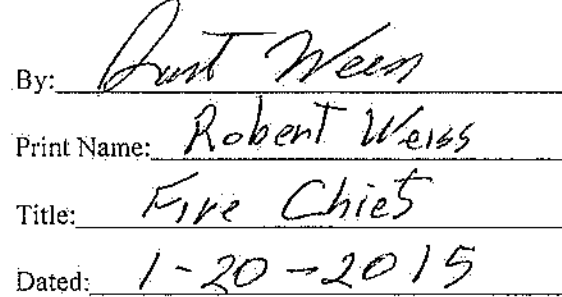 By:
Print Name: Robert Weiss
Title: Fire Chief
Dated: 1-20-2015